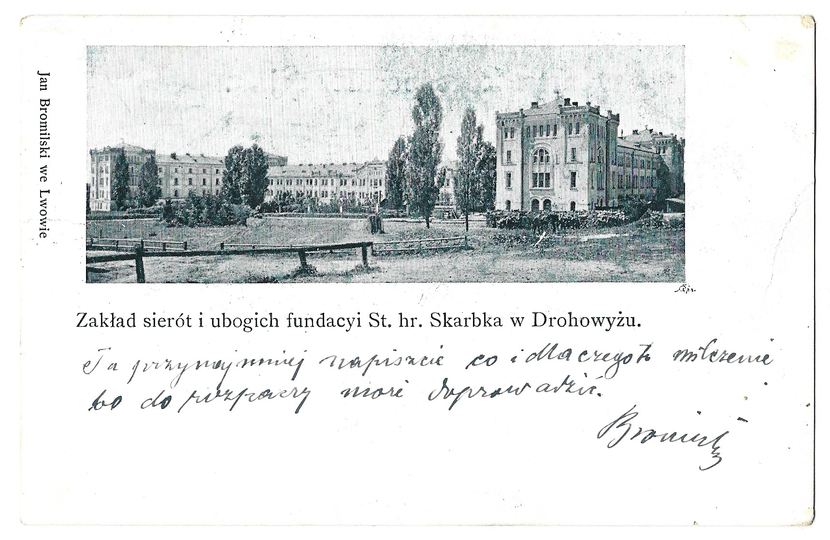 Jan Bromilski we Lwowie
Zakład sierót i ubogich fundacyi St. hr. Skarbka w Drohowyżu.
Ta przynajmniej napiszcie co i dlaczego to milczenie
bo do rozpaczy może doprowadzić.